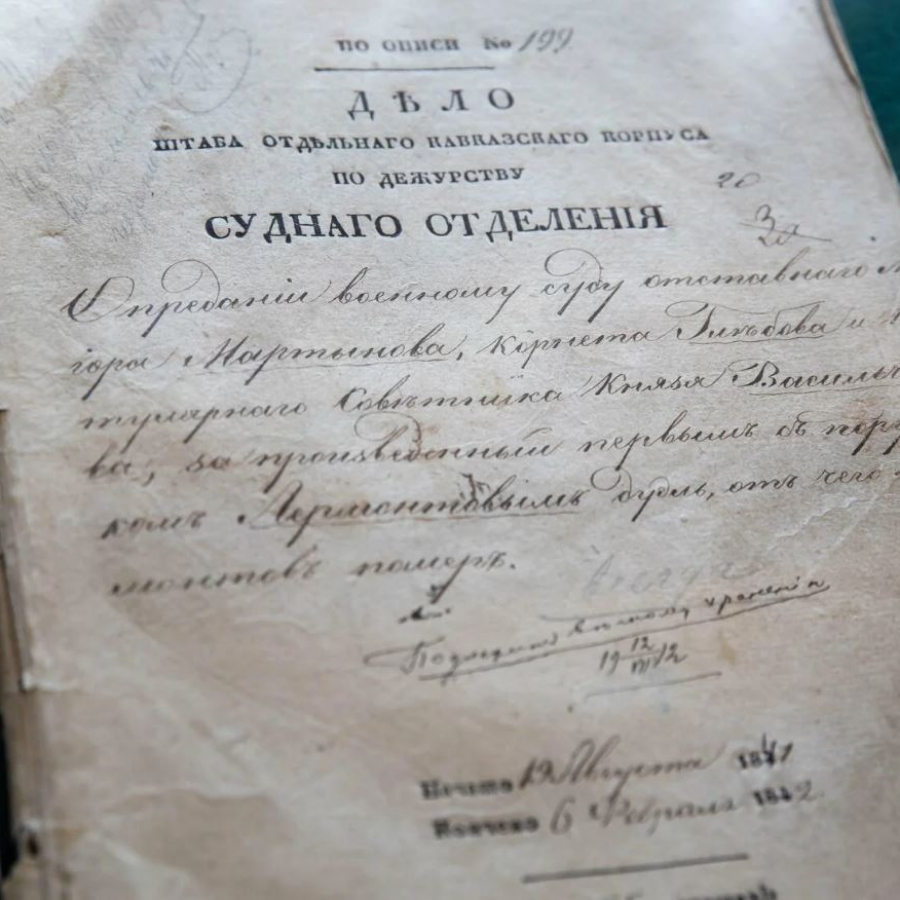 ПО ОПИСИ № 199
ДѢЛО
ШТАБА ОТДѢЛЬНАГО КАВКАЗСКАГО КОРПУСА
ПО ДЕЖУРСТВУ
СУДНАГО ОТДЕЛЕНІЯ
20
О преданіи военному суду отставнаго Ма
іора Мартынова, Корнета Глѣбова и Ти
тулярнаго Совѣтника Князя Васильчико
ва, за произведенный первымъ съ поручи
комъ Лермонтовымъ дуэль, отъ чего Лер
монтовъ померъ.
Подлежит вѣчному храненію
19 12/VII 12
Начато 19 Августа 1841
Кончено 6 Февраля 1842